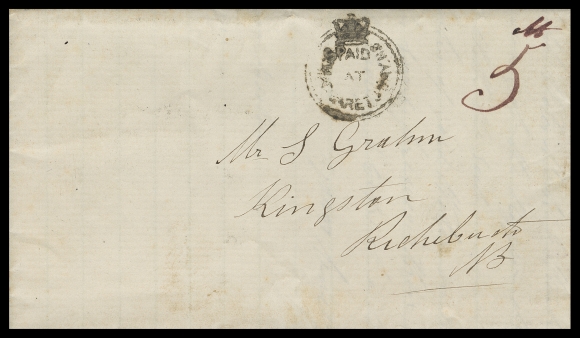 PAID
AT
5
Mr S Graham
Kingston
Richibucto
NB